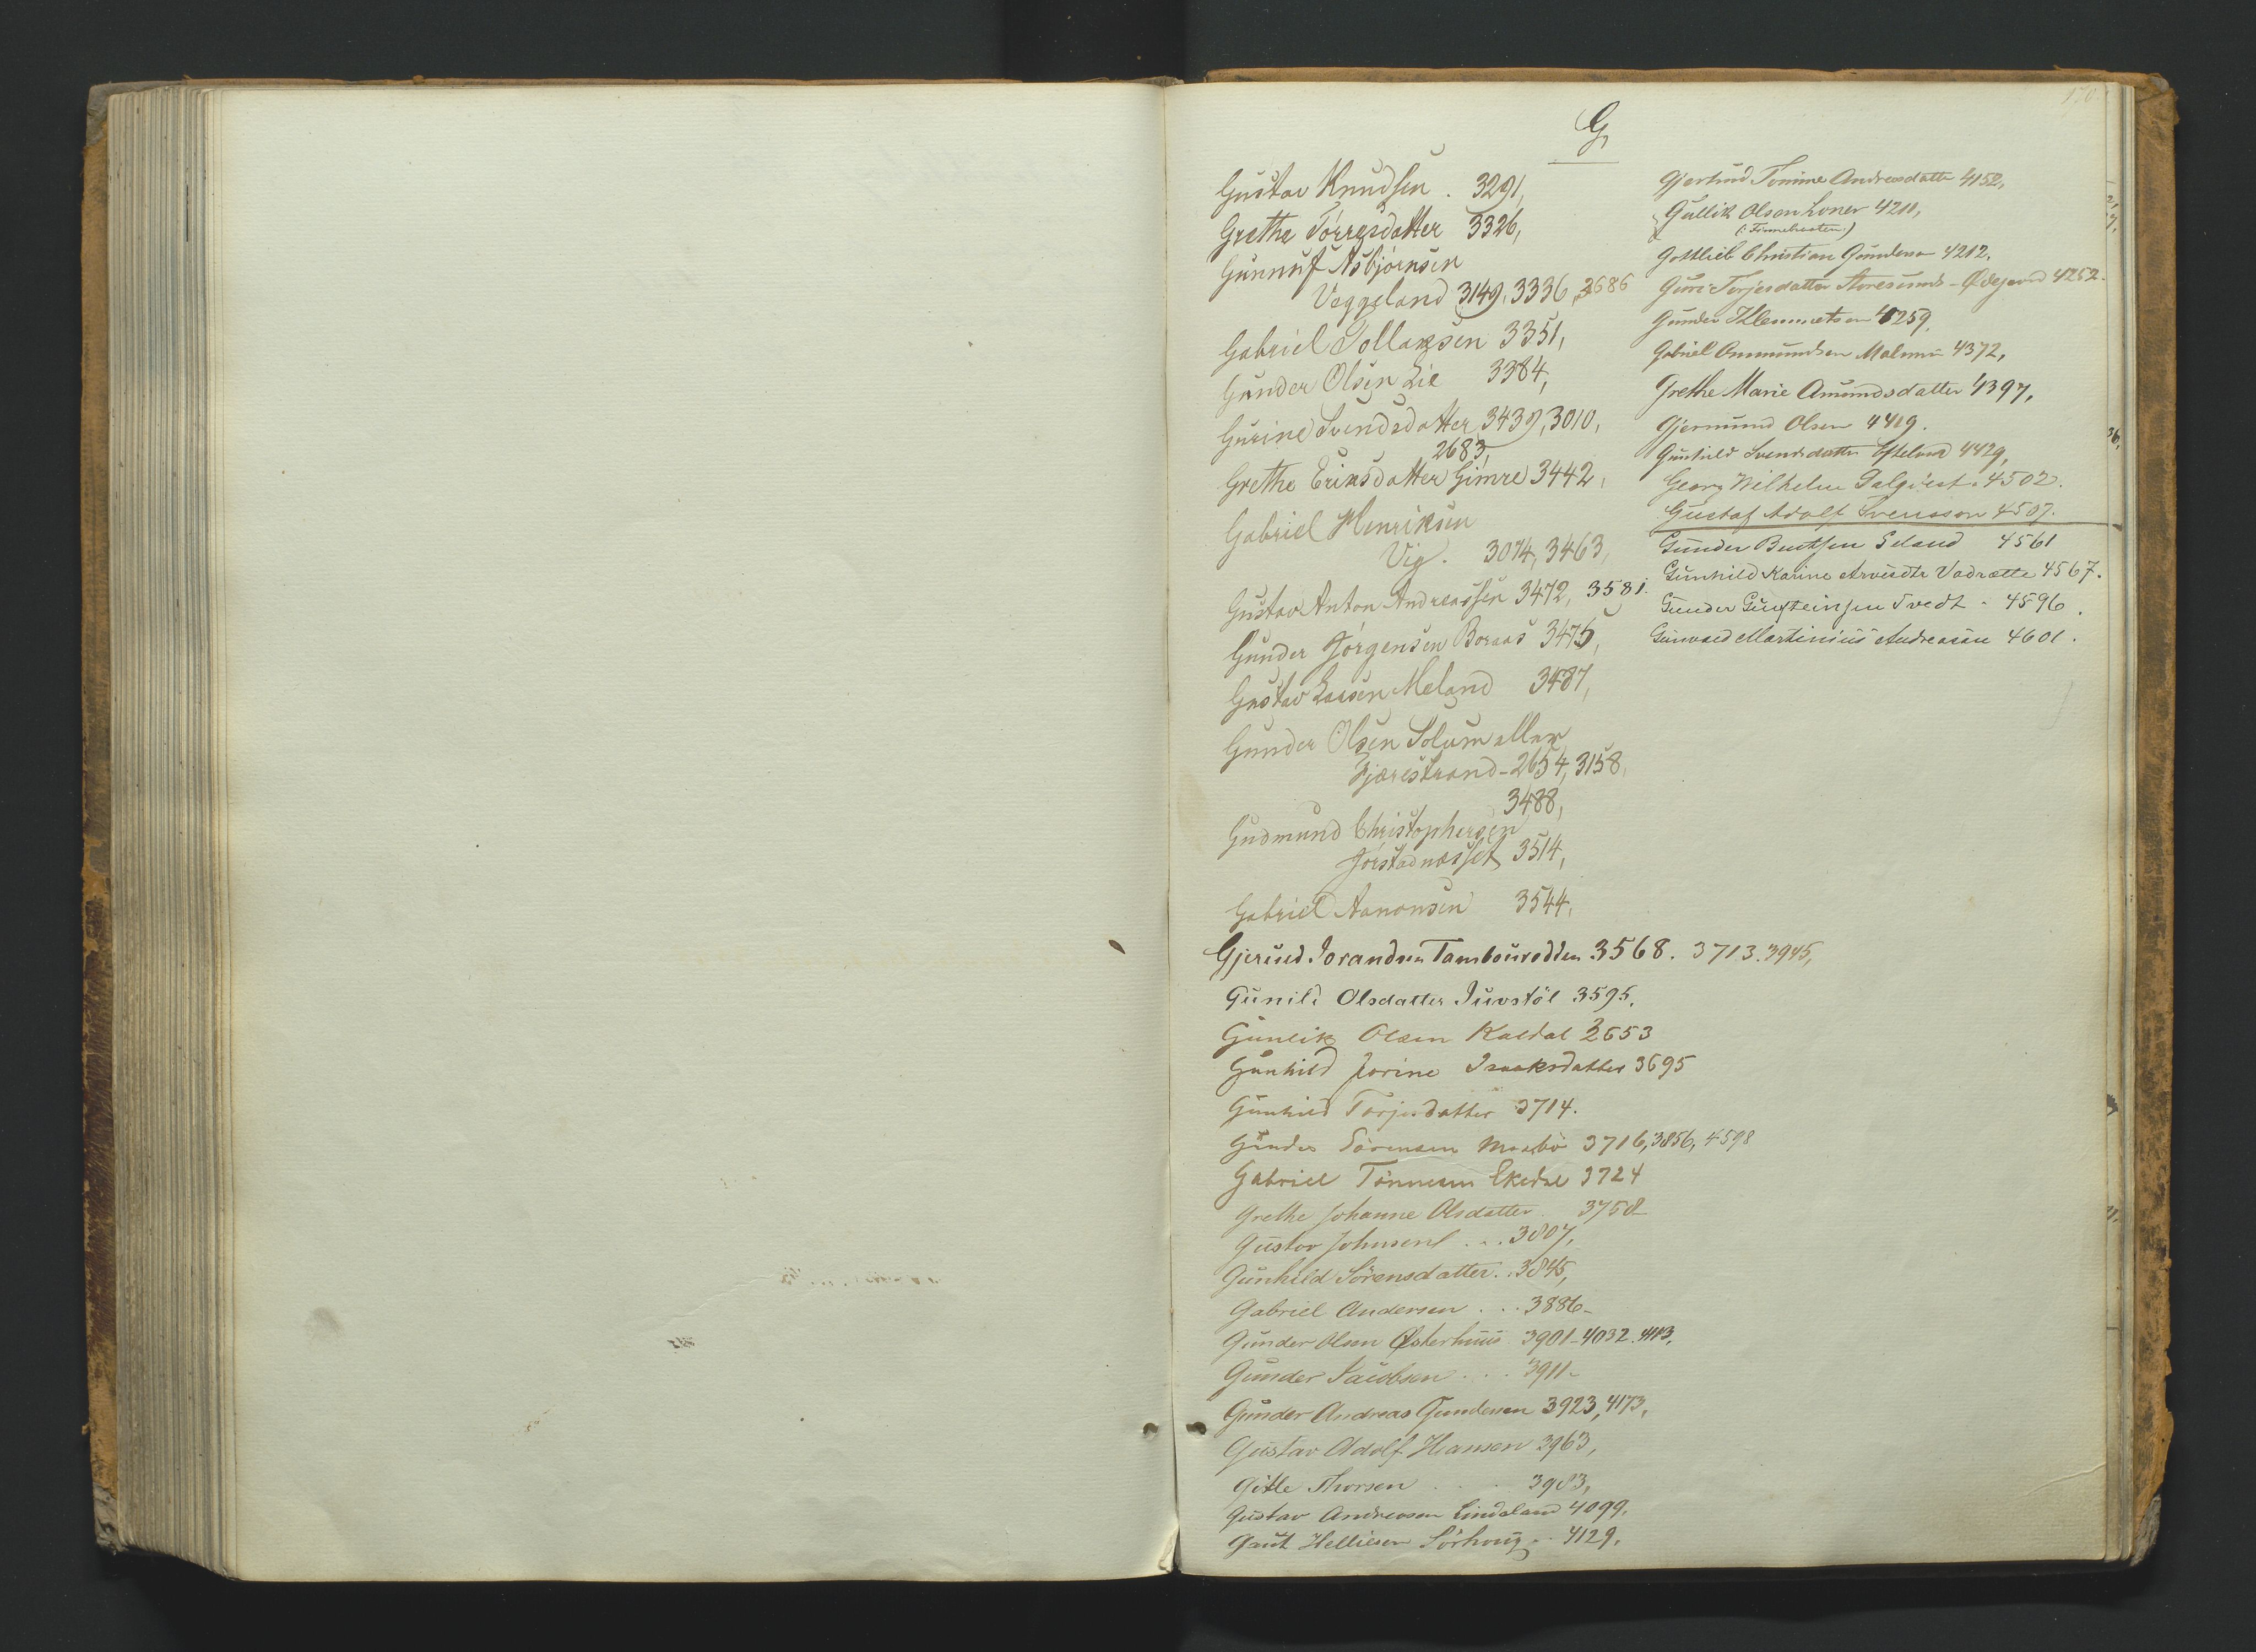 170
G
Gustav Knudsen . 3291,
Grethe Törresdatter 3326,
Gunnuf Asbjörnsen
Veggeland 3149, 3336, 2686
Gabriel Tollaksen 3351,
Gunder Olsen Lie 3384,
Gurine Svendsdatter 3439, 3010,
2683,
Grethe Eriksdatter Gimre 3442,
Gabriel Henriksen
Vig. 3074, 3463,
Gustav Anton Andreassen 3472, 3581.
Gunder Jörgensen Boraas 3475,
Gustav Larsen Meland 3487,
Gunder Olsen Solum eller
Gjærestrand - 2654, 3158,
3488,
Gudmund Christophersen
Jörstadnæsset 3514,
Gabriel Aanonsen 3544,
Gjeruld Jorandsen Tambourodden 3568. 3713. 3945,
Gunild Olsdatter Juvstöl 3595.
Gunlik Olsen Kaldal 3653
Gunhild Jorine Isaaksdatter 3695
Gunhild Torjusdatter 3714.
Gunder Sörensen Mosbö 3716, 3856, 4598
Gabriel Tönnesen Ekedal 3724
Grethe Johanne Olsdatter. 3758
Gustav Johnsen . . . 3807,
Gunhild Sörensdatter. . 3845,
Gabriel Andersen . . . 3886 -
Gunder Olsen Østerhuus 3901 - 4032. 4113,
Gunder Jacobsen . . . 3911 -
Gunder Andreas Gundersen 3923, 4173,
Gustav Adolf Hansen 3963,
Götte Thorsen . . 3983,
Gustav Andreasen Lindeland 4099,
Gaut Helliesen Sörhoug . . 4129,
Gjertrud Tomine Andreasdatter 4152,
Gullik Olson Loner 4211,
Gottlieb Christian Gundersen 4212,
Guri Terjesdatter Staresund - Ødegaard 4252 -
Gunder Klemmetsen 4259,
Gabriel Ommundsen Malmin 4372,
Grethe Marie Amundsdatter 4397,
Gjermund Olsen 4419.
Gunhild Svendsdatter Efteland 4429,
Georg Wilhelm Dalquist. 4502.
Gustaf Adolf Svensson 4507.
Gunder Bentsen Seland 4561
Gunhild Karine Arvesdtr Vadrætte 4567.
Gunder Gunsteinsen Tvedt - 4596.
Gunvald Martinius Andreasen 4601.